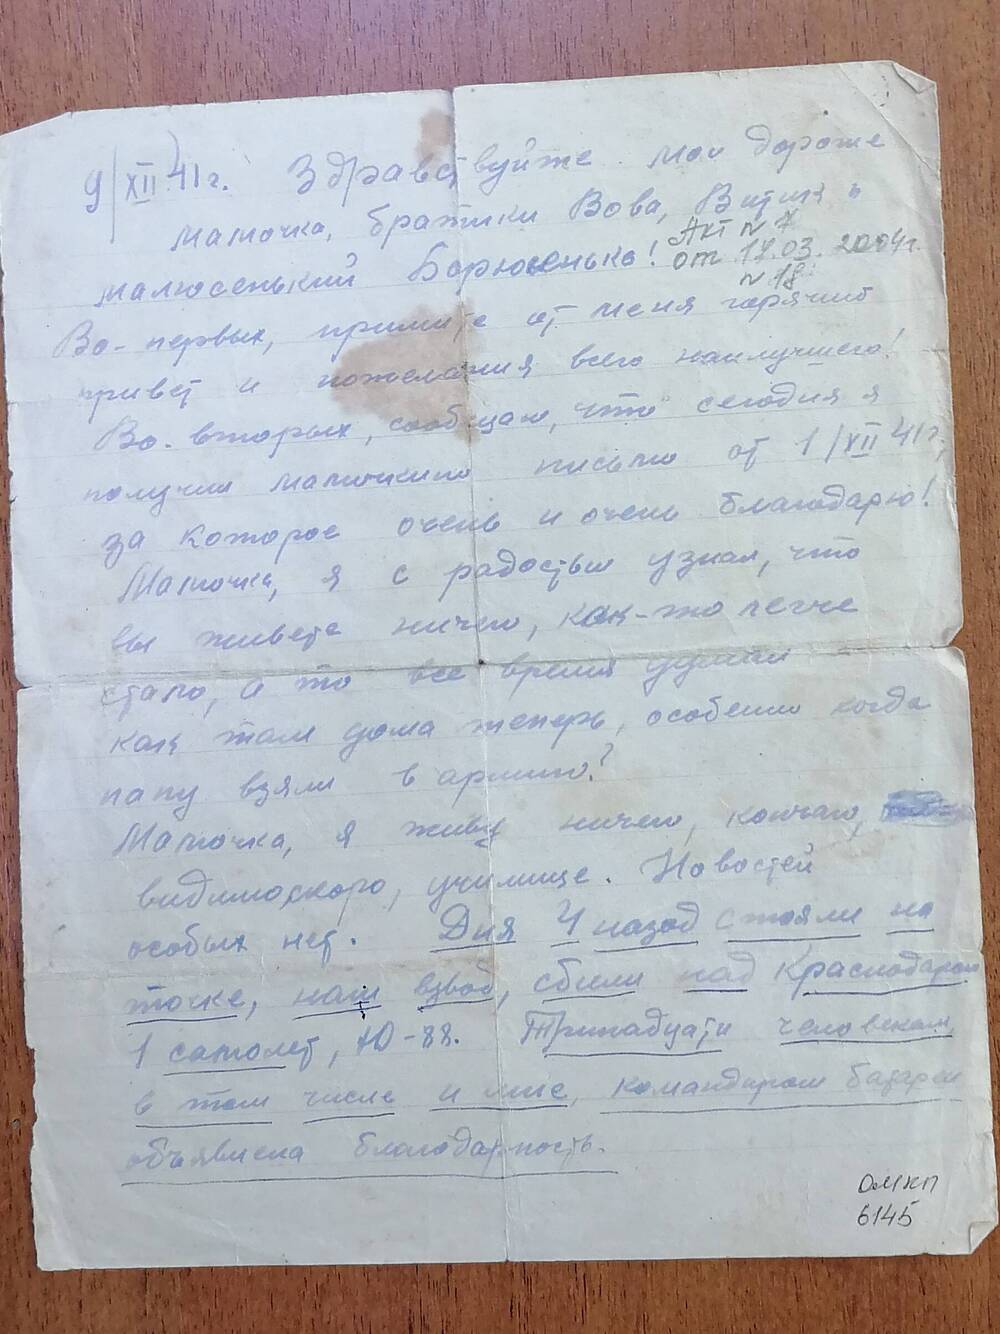 9/XII 41г. Здравствуйте мои дорогие
мамочка, братики Вова, Витик и
малюсенький Борюсенька!
Акт N 7
от 17.03.2004г.
N 18
Во-первых, примите от меня горячий
привет и пожелания всего наилучшего!
Во-вторых, сообщаю, что сегодня я
получил мамочкино письмо от 1/XII 41г,
за которое очень и очень благодарю!
Мамочка, я с радостью узнал, что
вы живете ничего, как-то легче
стало, а то все время думал
как там дома теперь, особенно когда
папу взяли в армию?
Мамочка, я живу ничего, кончаю,
видимо, скоро, училище. Новостей
особых нет. Дня 4 назад стояли на
точке, наш взвод, сбили над Краснодаром
1 самолет, Ю-88. Тринадцати человекам,
в том числе и мне, командиром батареи
объявлена благодарность.
ОМКП
6145